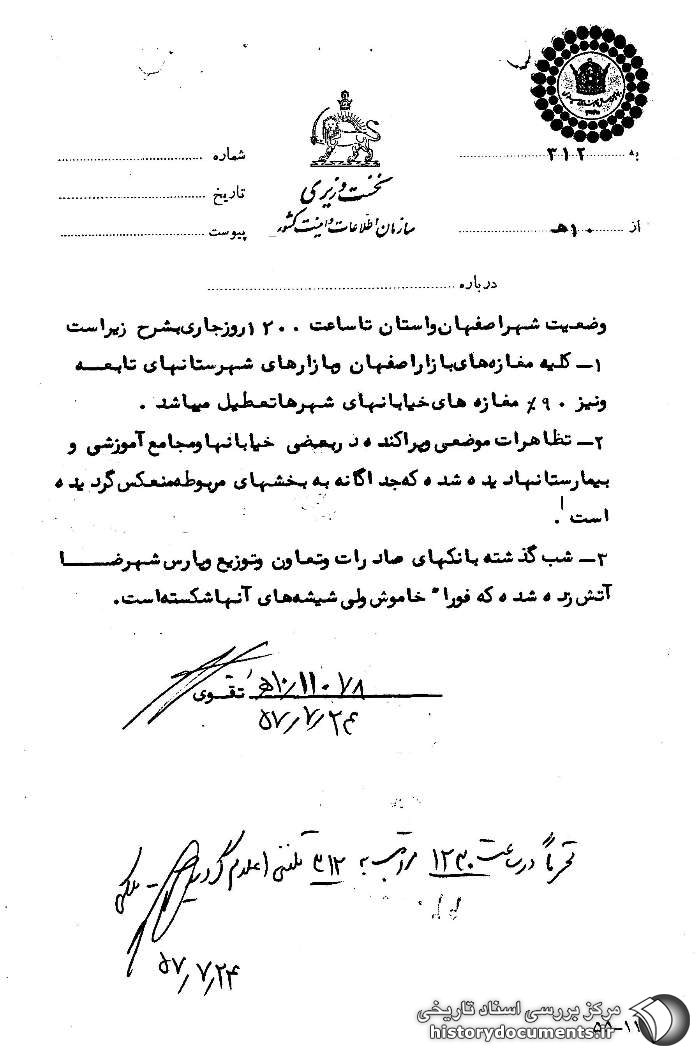 به ۳۱۲
شماره
نخست وزیری
تاریخ
سازمان اطلاعات و امنیت کشور
از ۱۰هـ
پیوست
درباره
وضعیت شهر اصفهان و استان تا ساعت ۱۲۰۰ روز جاری بشرح زیر است
۱- کلیه مغازه‌های بازار اصفهان و بازارهای شهرستانهای تابعه
و نیز ۹۰٪ مغازه های خیابانهای شهرها تعطیل میباشد .
۲- تظاهرات موضعی و پراکنده در بعضی خیابانها و مجامع آموزشی و
بیمارستانها دیده شده که جداگانه به بخشهای مربوطه منعکس گردیده
است .
۳- شب گذشته بانکهای صادرات و تعاون و توزیع و پارس شهرضا
آتش زده شده که فوراً خاموش ولی شیشه‌های آنها شکسته است.
تقوی ۱۰هـ/۱۱۰۷۸
۵۷/۷/۲۴
در ساعت ۱۲۳۰ مراتب به ۳۱۲ تلفنی اعلام گردید - ملکی
۵۷/۷/۲۴
مرکز بررسی اسناد تاریخی
historydocuments.ir